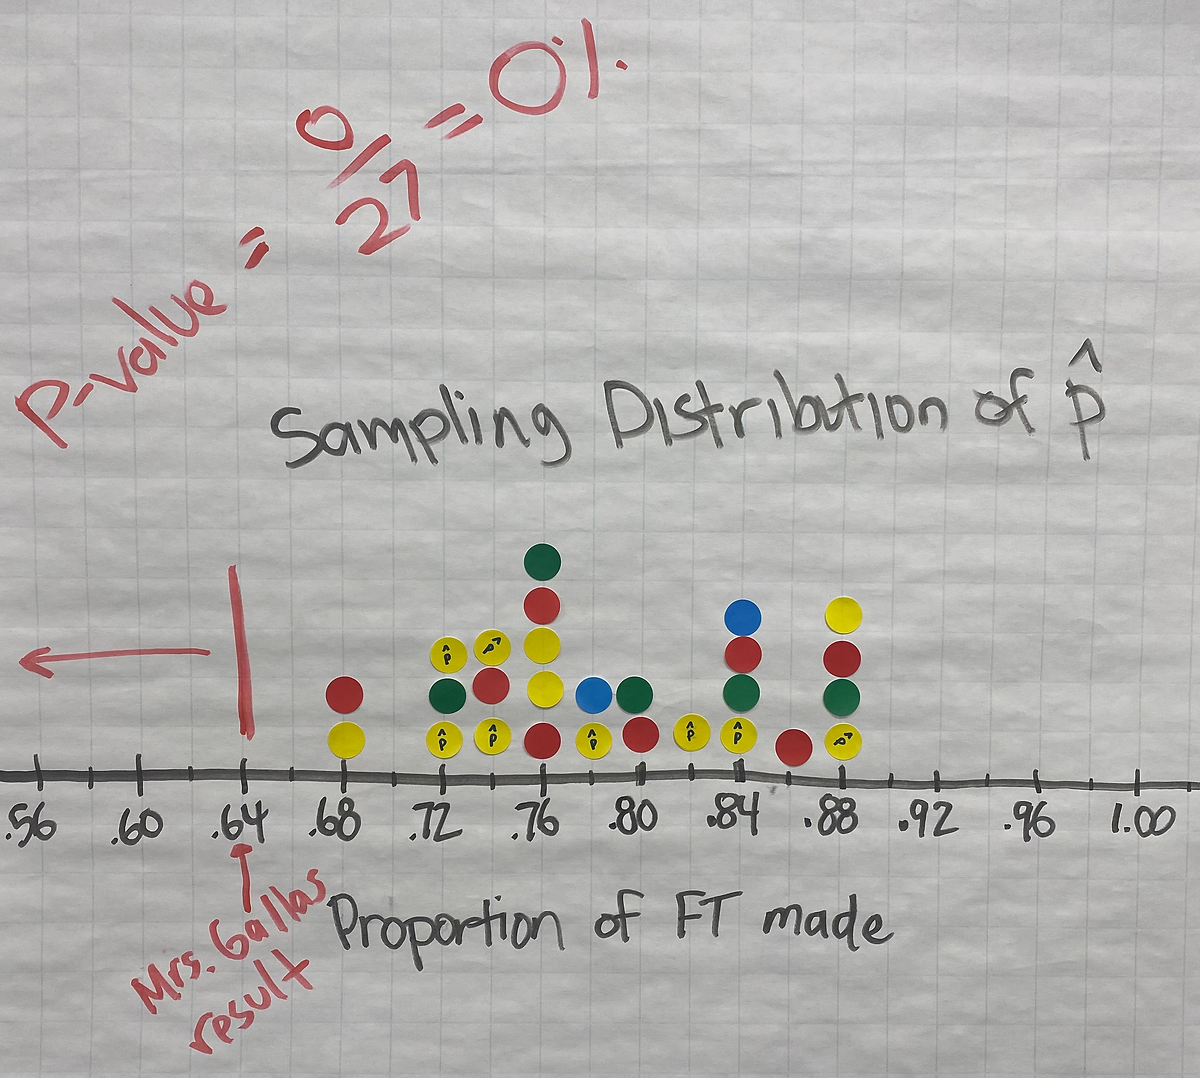 P-value = 0/27 = 0%
Sampling Distribution of p̂
p̂ p̂
p̂ p̂ p̂ p̂ p̂ p̂
.56 .60 .64 .68 .72 .76 .80 .84 .88 .92 .96 1.00
Mrs. Gallas
result
Proportion of FT made